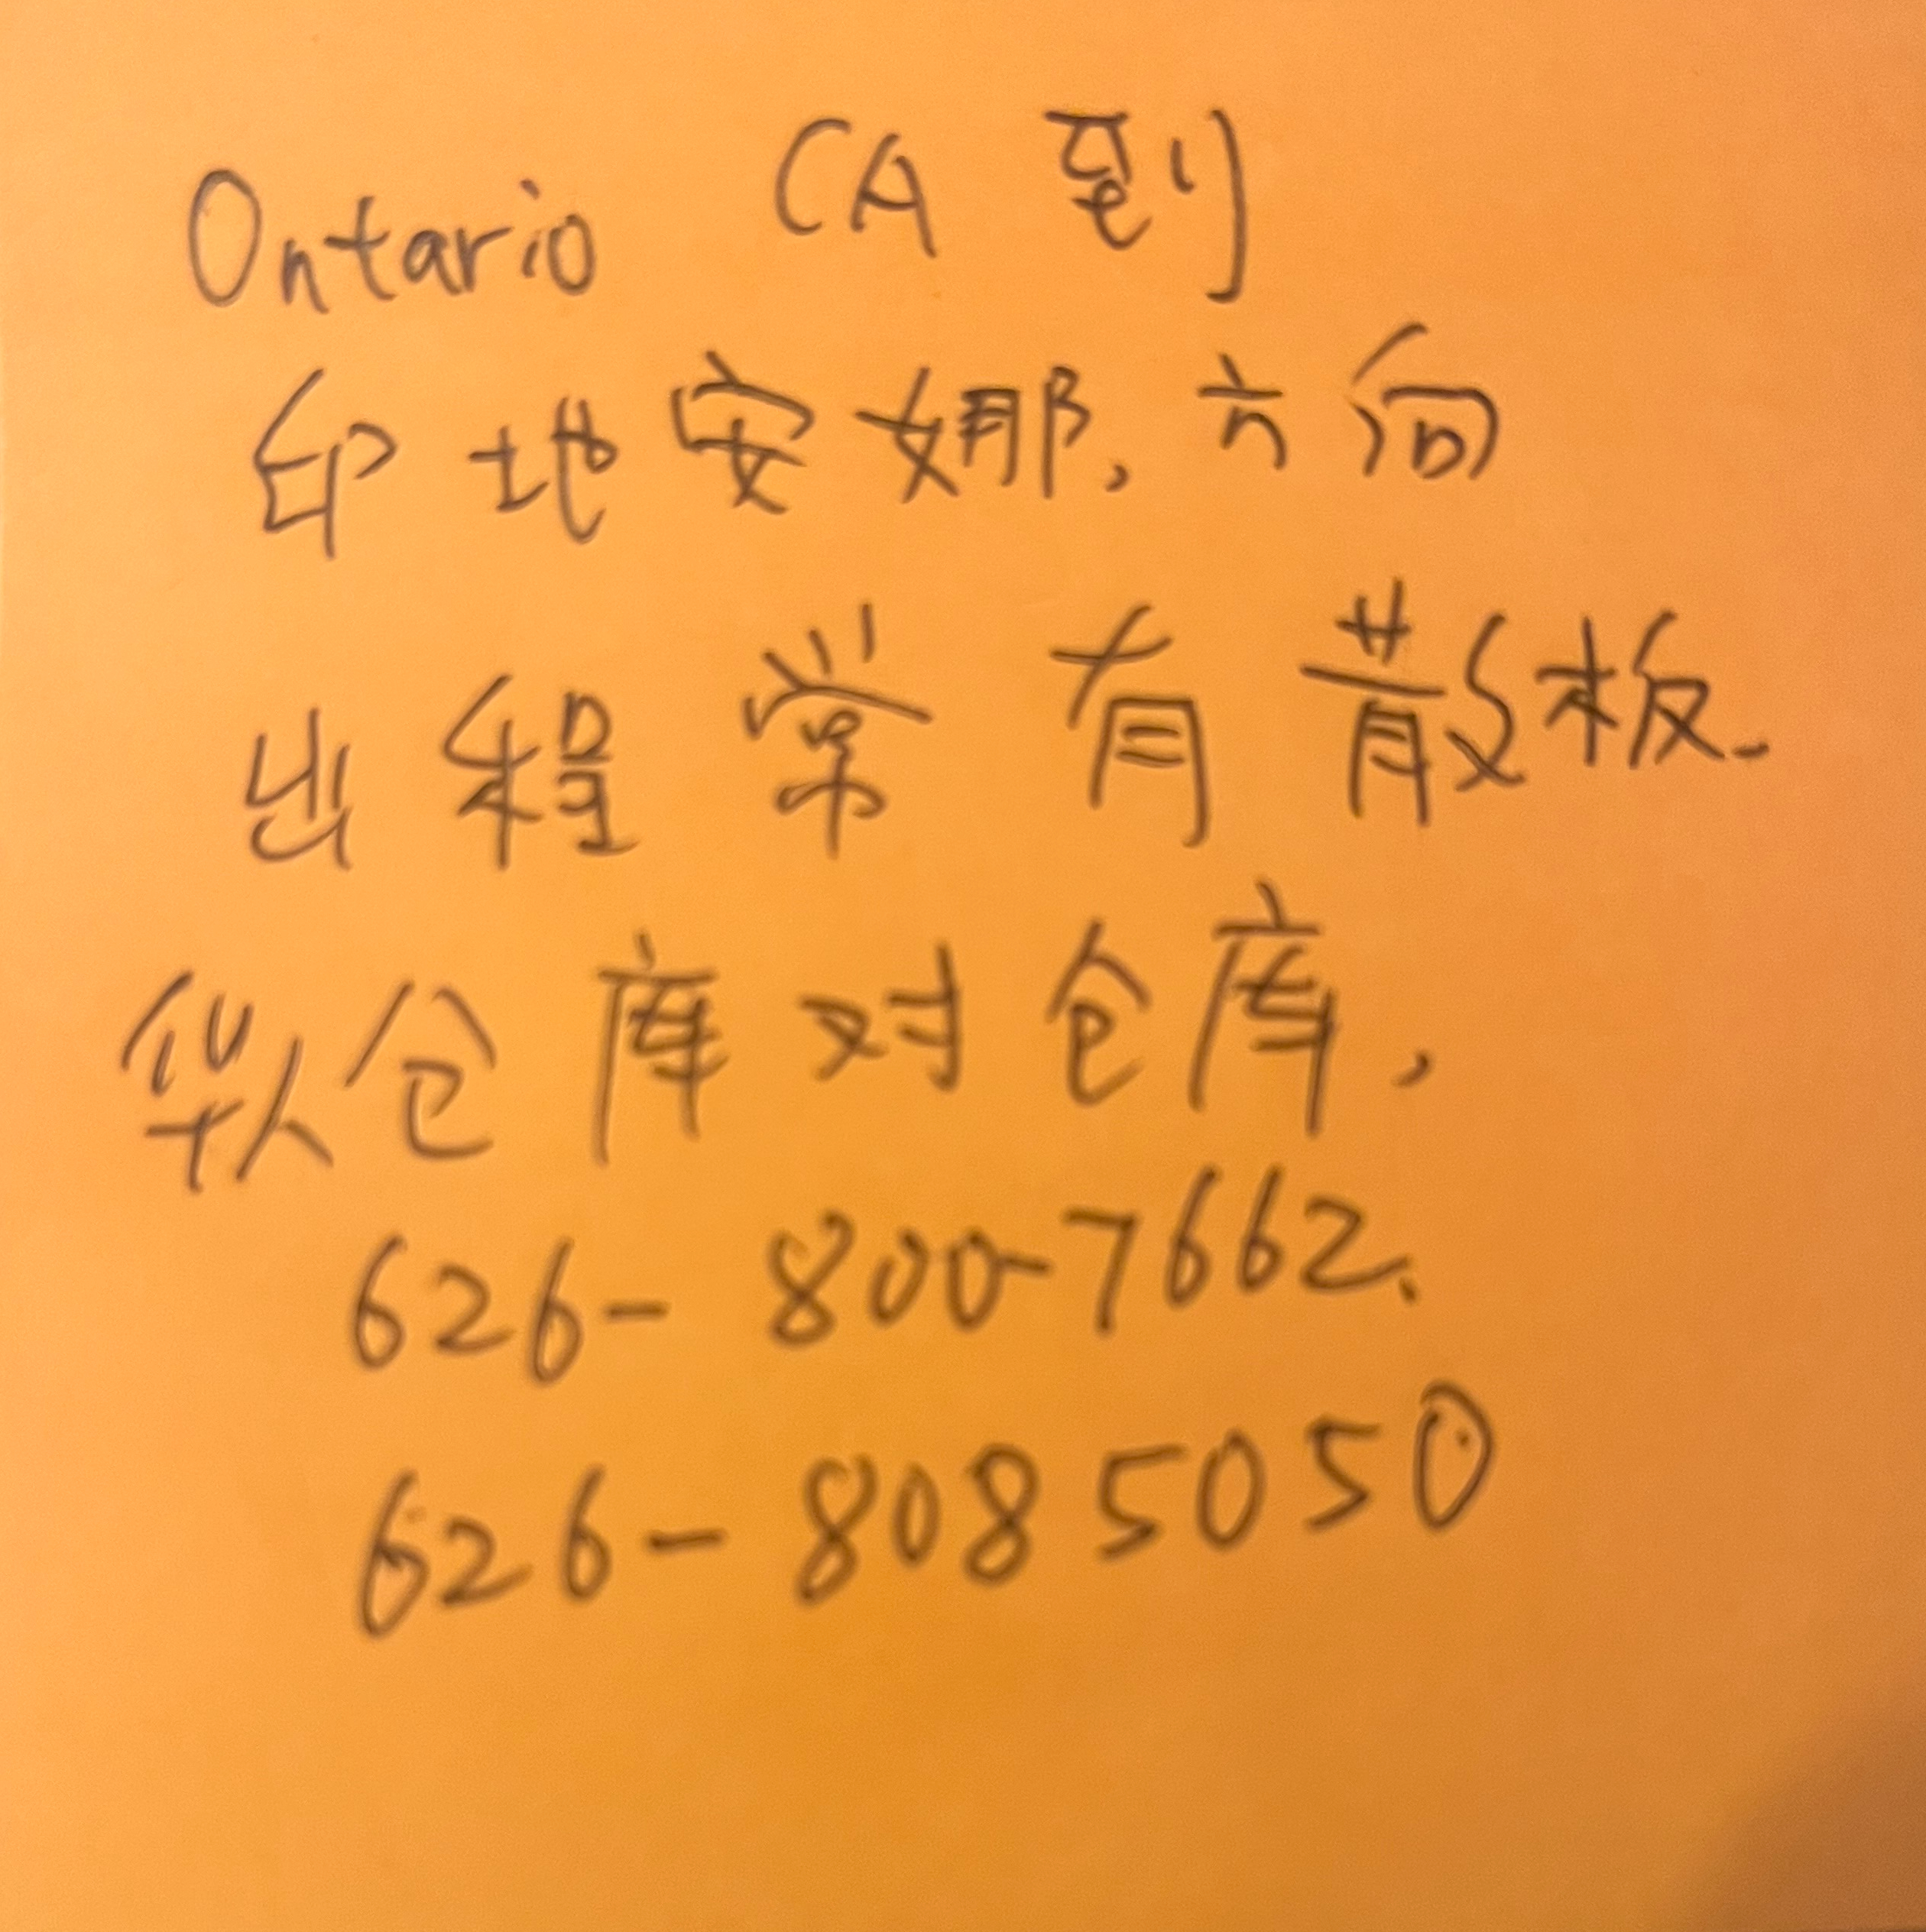 Ontario CA 到
印地安娜，方向
出程常有散板.
华人仓库对仓库，
626-800-7662、
626-8085050